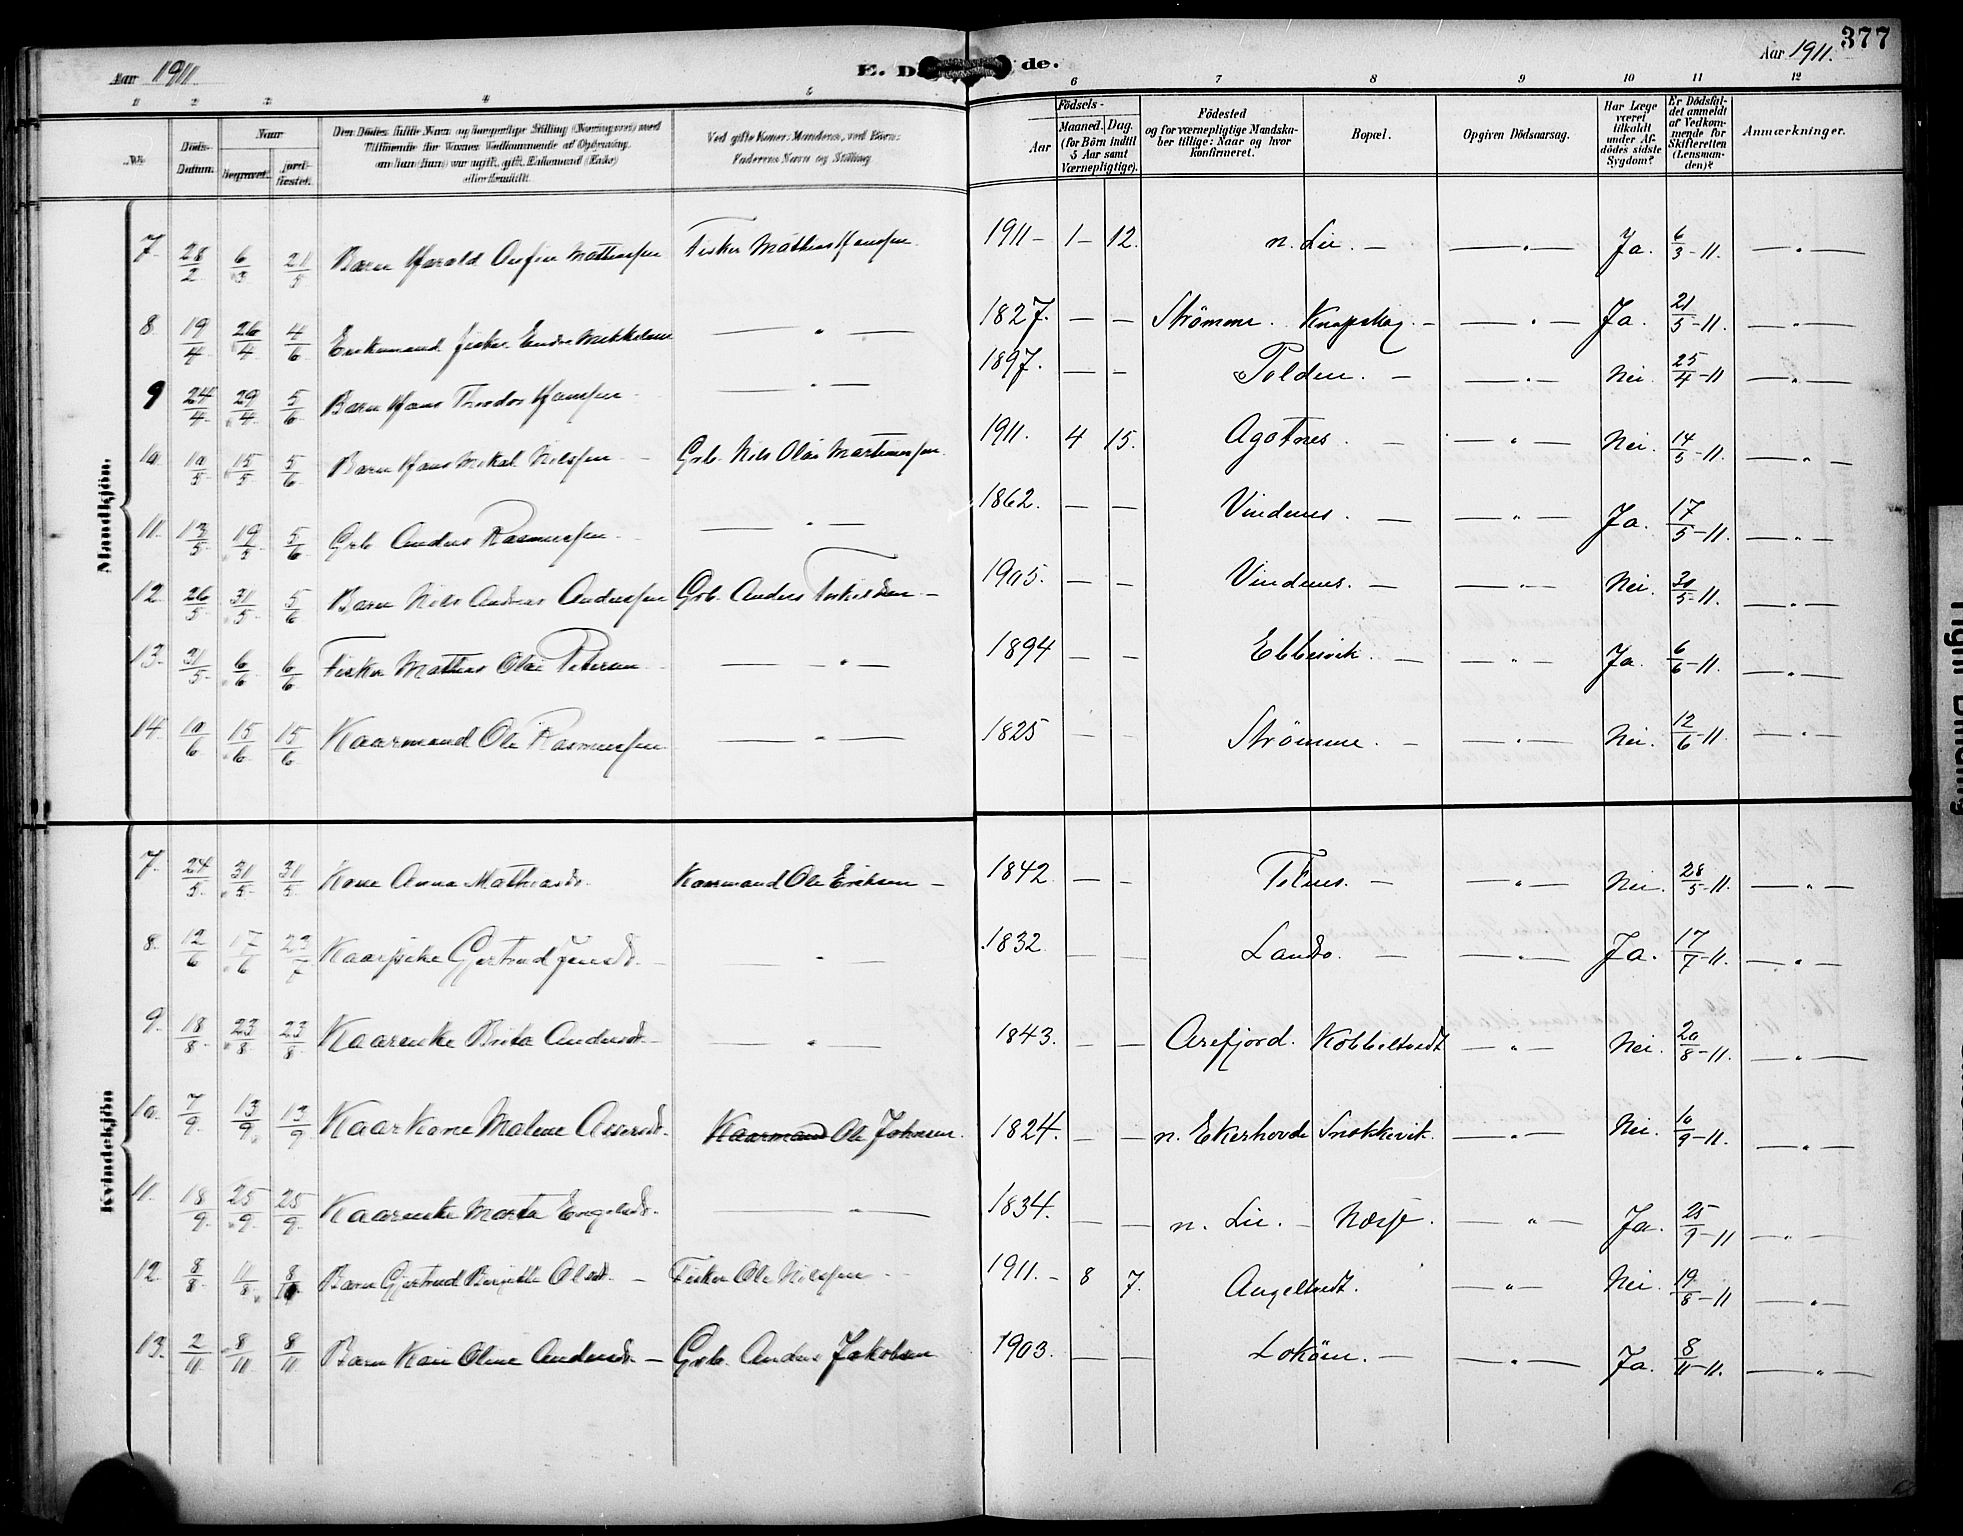 Aar 1911.
E. D de.
Aar 1911. 377
1 2 3 4 5 6 7 8 9 10 11 12
No. Døds-Datum. Naar begravet. jordfæstet. Den Dødes fulde Navn og borgerlige Stilling (Næringsvei) med Ved gifte Koner: Mandens, ved Børn: Faderens Navn og Stilling Fødsels- Aar Maaned. Dag. (for Børn indtil 5 Aar samt Værnepligtige). Fødested og for værnepligtige Mandskaber tillige: Naar og hvor konfirmeret. Bopæl. Opgiven Dødsaarsag. Har Læge været tilkaldt under Afdødes sidste Sygdom? Er Dødsfaldet anmeldt af Vedkommende for Skifteretten (Lensmanden)? Anmærkninger.
Mandkjøn.
7. 28/2 6/3 21/5 Barn Harald Mathiassen Fisker Mathias Hansen. 1911 - 1 - 12. n. Lie. - - " - Ja. 6/3-11. - " -
8. 19/4 26/4 4/6 Enkemand fisker Endre Mikkelsen - " - 1827. - - Strømme. Knapskog. - - " - Ja. 21/5-11. - " -
9 24/4 29/4 5/6 Barn Hans Theodor Hansen. - " - 1897. - - Tolden. - - " - Nei. 25/4-11 - " -
10. 10/5 15/5 5/6 Barn Hans Mikal Nilssen - Grb. Nils Olai Martinussen. 1911. 4 15. Agotnes. - - " - Nei. 14/5-11. - " -
11. 13/5 19/5 5/6 Grb Anders Rasmussen. - " - 1862. - - Vindenes. - - " - Ja. 17/5-11. - " -
12. 26/5 31/5 5/6 Barn Nils Andreas Anderssen Grb. Anders - 1905. - - Vindenes. - - " - Nei. 30/5-11. - " -
13. 31/5 6/6 6/6 Fisker Mathias Olai Petersen - " - 1894 - - Ebbesvik. - - " - Ja. 6/6-11. - " -
14. 10/6 15/6 15/6 Kaarmand Ole Rasmussen - " - 1825 - - Strømme. - - " - Nei. 12/6-11. - " -
Kvindekjøn
7. 24/5 31/5 31/5 Kone Anna Mathiasdr. Kaarmand Ole Eriksen - 1842. - - Tofnes. - - " - Nei. 28/5-11. - " -
8. 12/6 17/6 23/7 Kaarpike Gjertrud Jensdr. - " - 1832 - - Landro. - - " - Ja. 17/7-11. - " -
9. 18/8 23/8 23/8 Kaarenke Brita Andersdr. - " - 1843. - - Arefjord. Kobbeltvedt - " - Nei. 20/8-11. - " -
10. 7/9 13/9 13/9 Kaarkone Malene Assersdr. Kaarmand Ole Johnsen. 1824. - - n. Ekerhovde Snekkevik. - " - Nei. 10/9-11. - " -
11. 18/9 25/9 25/9 Kaarenke Marta Engelsdr. - " - 1834. - - n. Lie. - Næsse. - " - Ja. 25/9-11 - " -
12. 8/8 11/8 8/10 Barn Gjertrud Bergitte Olsdr. - Fisker Ole Nilssen - 1911. - 8 7. Angeltvedt. - " - Nei. 19/8-11 - " -
13. 2/11 8/11 8/11 Barn Kari Oline Andersdr. - Grb. Anders Jakobsen 1903. - - Lokøen. - - " - Ja. 8/11-11. - " -